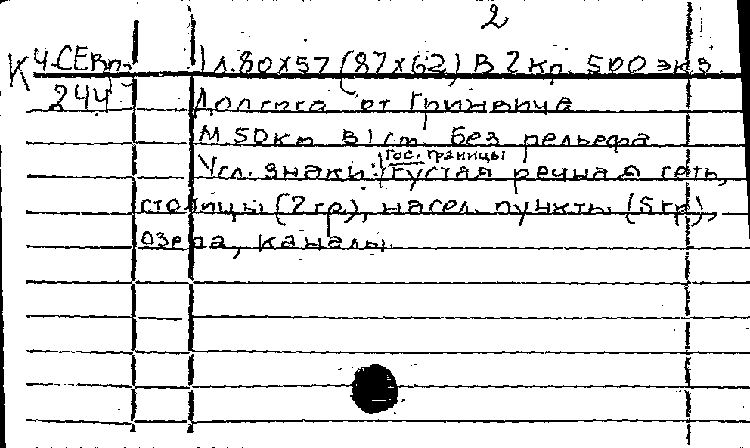 2
К 4-СЕВ 1 л. 80х57 (87х62) В 2 кр. 500 экз.
244 Долгота от Гринвича
М. 50км в 1 см. без рельефа
Гос. границы
Усл. знаки: густая речная сеть,
столицы (2 гр), насел. пункты (5 гр),
озера, каналы